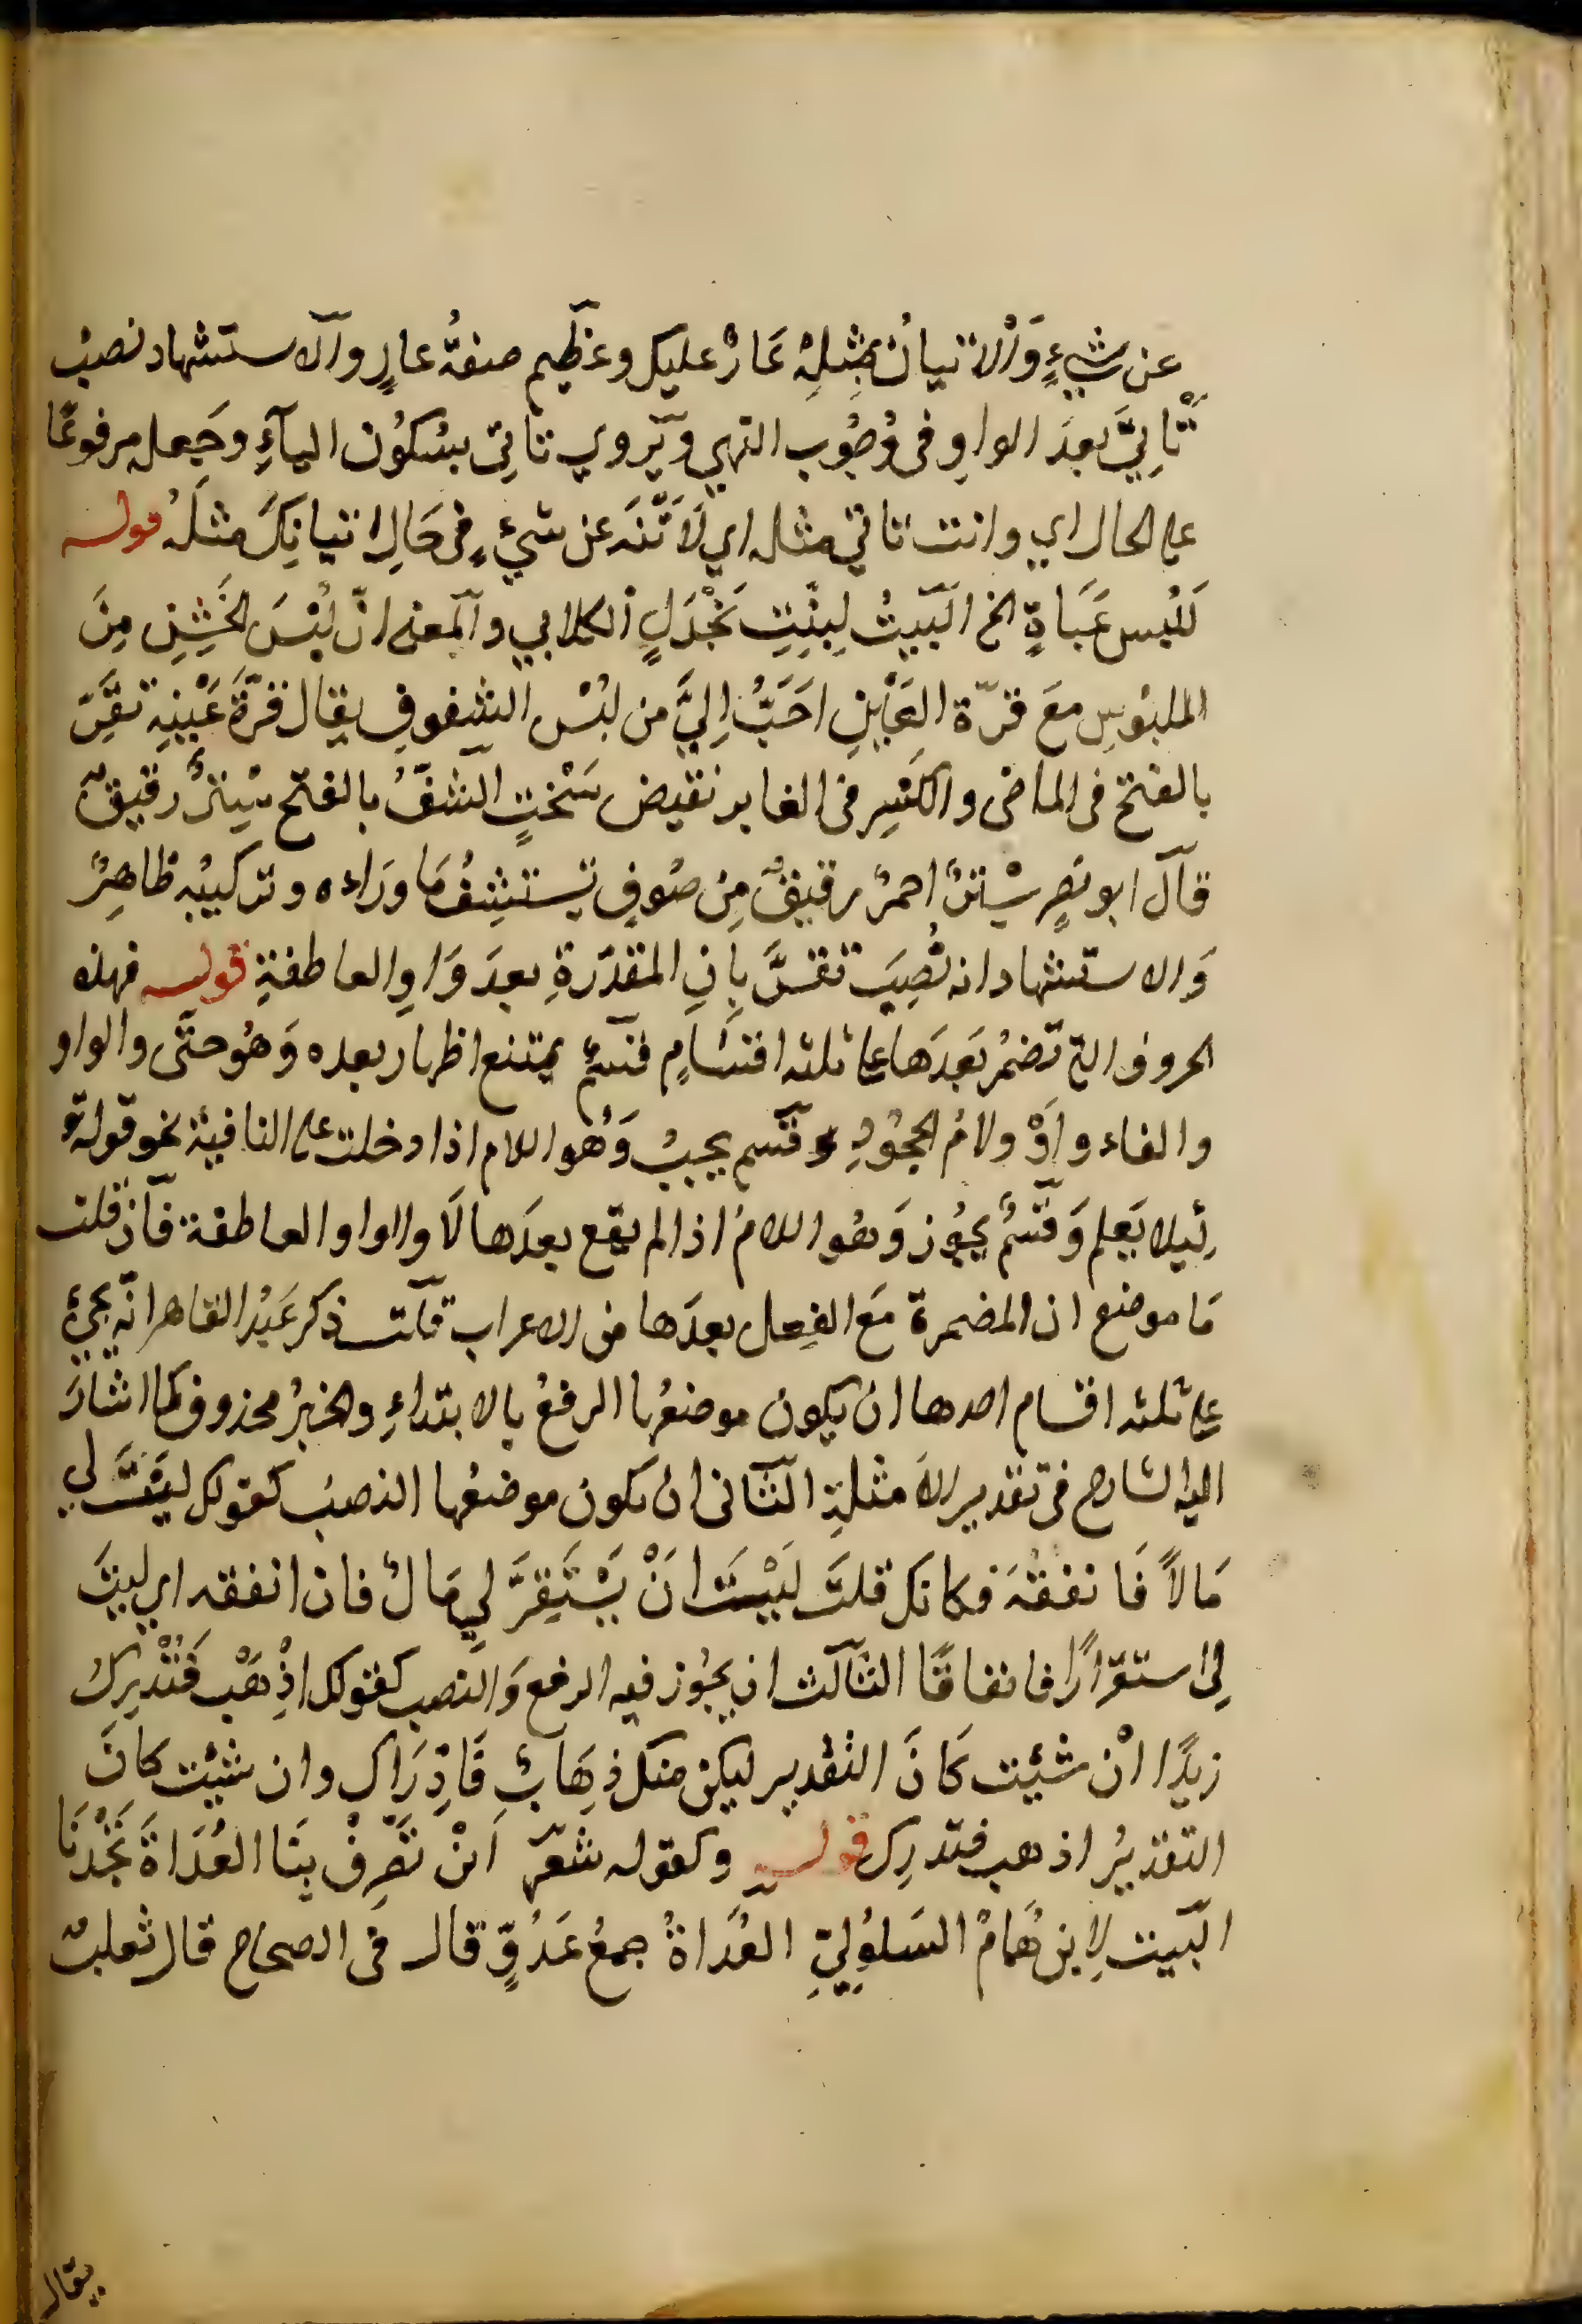 عن شيءٍ وَالاتيانُ بمِثلِهْ عَارٌ عليك وعظيم صفةُ عارٍ والاستشهاد نصبُ
تَأتِيَ بعدَ الواوِ فى وُجُوب النهي ويروي تاتِى بسُكُون اليآءِ وجعله مرفوعًا
على الحال اي وانت تاتي مثله اي لَا تَنْهَ عن شيءٍ في حَالِ اتيانِكَ مثلَهُ قوله
لَلُبس عَبَاةٍ الخ البَيتُ لِبنِتِ بَحْدَلٍ الكلابي والمعنى انّ لُبْسَ الخَشِنِ مِنَ
الملبُوسِ معَ قرّة العَيْنِ احَبُّ اِلَيَّ من لبْس الشفوف يقال قرَّةَ عَيْنِيهِ تقَرّ
بالفتح فى الماضى والكَسِر فى الغابر نقيض سَخْنتٍ الشفُّ بالفتح سِتِرٌ رقيقٌ
قال ابو نصرٍ سْترٌ احمرُ رقيقٌ مِن صُوفٍ يَستشِفُ مَا ورَاءه وتركيبُه ظاهِرٌ
وَالاستشهاد انه نُصِبَ تقرَّ بِانِ المقدّرةِ بعدَ وَاوِ العاطفةِ قوله فهذه
الحروف التى تضمُر بَعدَها على ثلثه اقسَامٍ قسمٌ يمتنع اظهار بعده وَهُو حتَّى والواو
والفاء وَاَوْ ولامُ الجحُودِ وقسم يجبُ وَهُو اللام اذا دخلت على النافية نحو قوله تع
لِئيلا يَعلم وَقسْمٌ يجوُز وَهُو اللامُ اذا لم يقع بعدَها لَا والواو العاطفة فان قلت
مَا موضع ان المضمرة مَعَ الفِعل بعدَها من الاعراب قلت ذكر عَبْدُ القاهر انّه يجئ
على ثلثه اقسام احدها ان يكون موضعُها الرفعُ بالابتداءِ والخبرُ محذوف كما اشارَ
اليه الشارح فى تقدير الامثلةِ الثانى ان يكون موضعُها النصبُ كقولك ليتَ لي
مَالاً فَانفقُهَ فكانك قلتَ لَيْتَ انْ يَسْتَقِرَّ لِي مَالٌ فان انفقه اي ليتَ
لِى استقرارًا فانفاقًا الثالث ان يجُوز فيه الرفع وَالنصب كقولك اذِْهَبْ فَتُدْرِكَُ
زيدًا انْ شيئت كَانَ التقدير ليكن منك ذِهَابٌ فَاِدْرَاك وان شيئت كانَ
التقديرُ اذهب فتدرِك قوله وكقوله شعر اَنْ تَصْرِفْ بِنَا العُدَاةَ تَجْدنَا
البَيت لِابنِ هُمَامْ السَلوُلِيِّ العُدَاةُ جمعُ عَدُوٍّ قال فى الصحاح قال ثعلبٌ
يقال